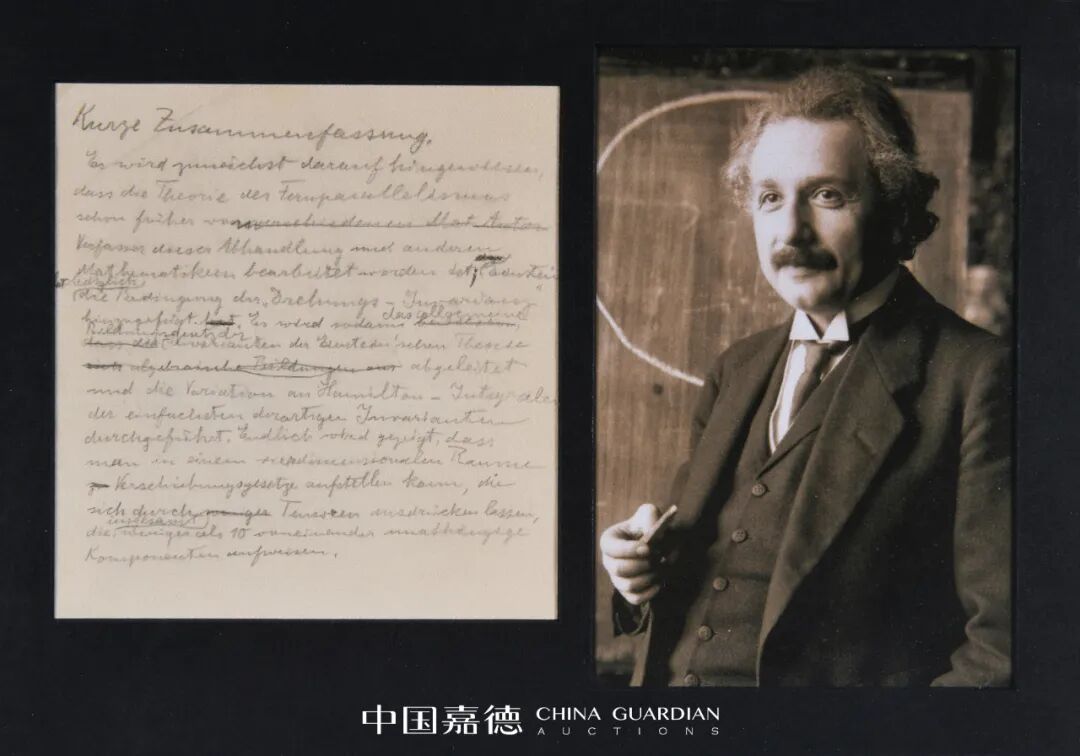 Kurze Zusammenfassung.
Es wird zunächst darauf hingewiesen,
dass die Theorie des Fernparallelismus
schon früher von verschiedenen Mat. Autor
Verfasser dieser Abhandlung und anderen
Mathematikern bearbeitet worden ist, Einstein
hat lediglich
die Bedingung der „Drehungs-Invarianz"
hinzugefügt hat. Es wird sodann
das allgemeine
Bildungsgesetz der
dass die Invarianten der Einstein'schen Theorie
sich algebraische Bildungen aus abgeleitet
und die Variation an Hamilton-
der einfachsten derartigen Invarianten
durchgeführt. Endlich wird gezeigt, dass
man in einem vierdimensionalen Raume
Verschiebungsgesetze aufstellen kann, die
sich durch Tensoren ausdrücken lassen,
insgesamt
die weniger als 10 voneinander unabhängige
Komponenten aufweisen.
中国嘉德 CHINA GUARDIAN
AUCTIONS